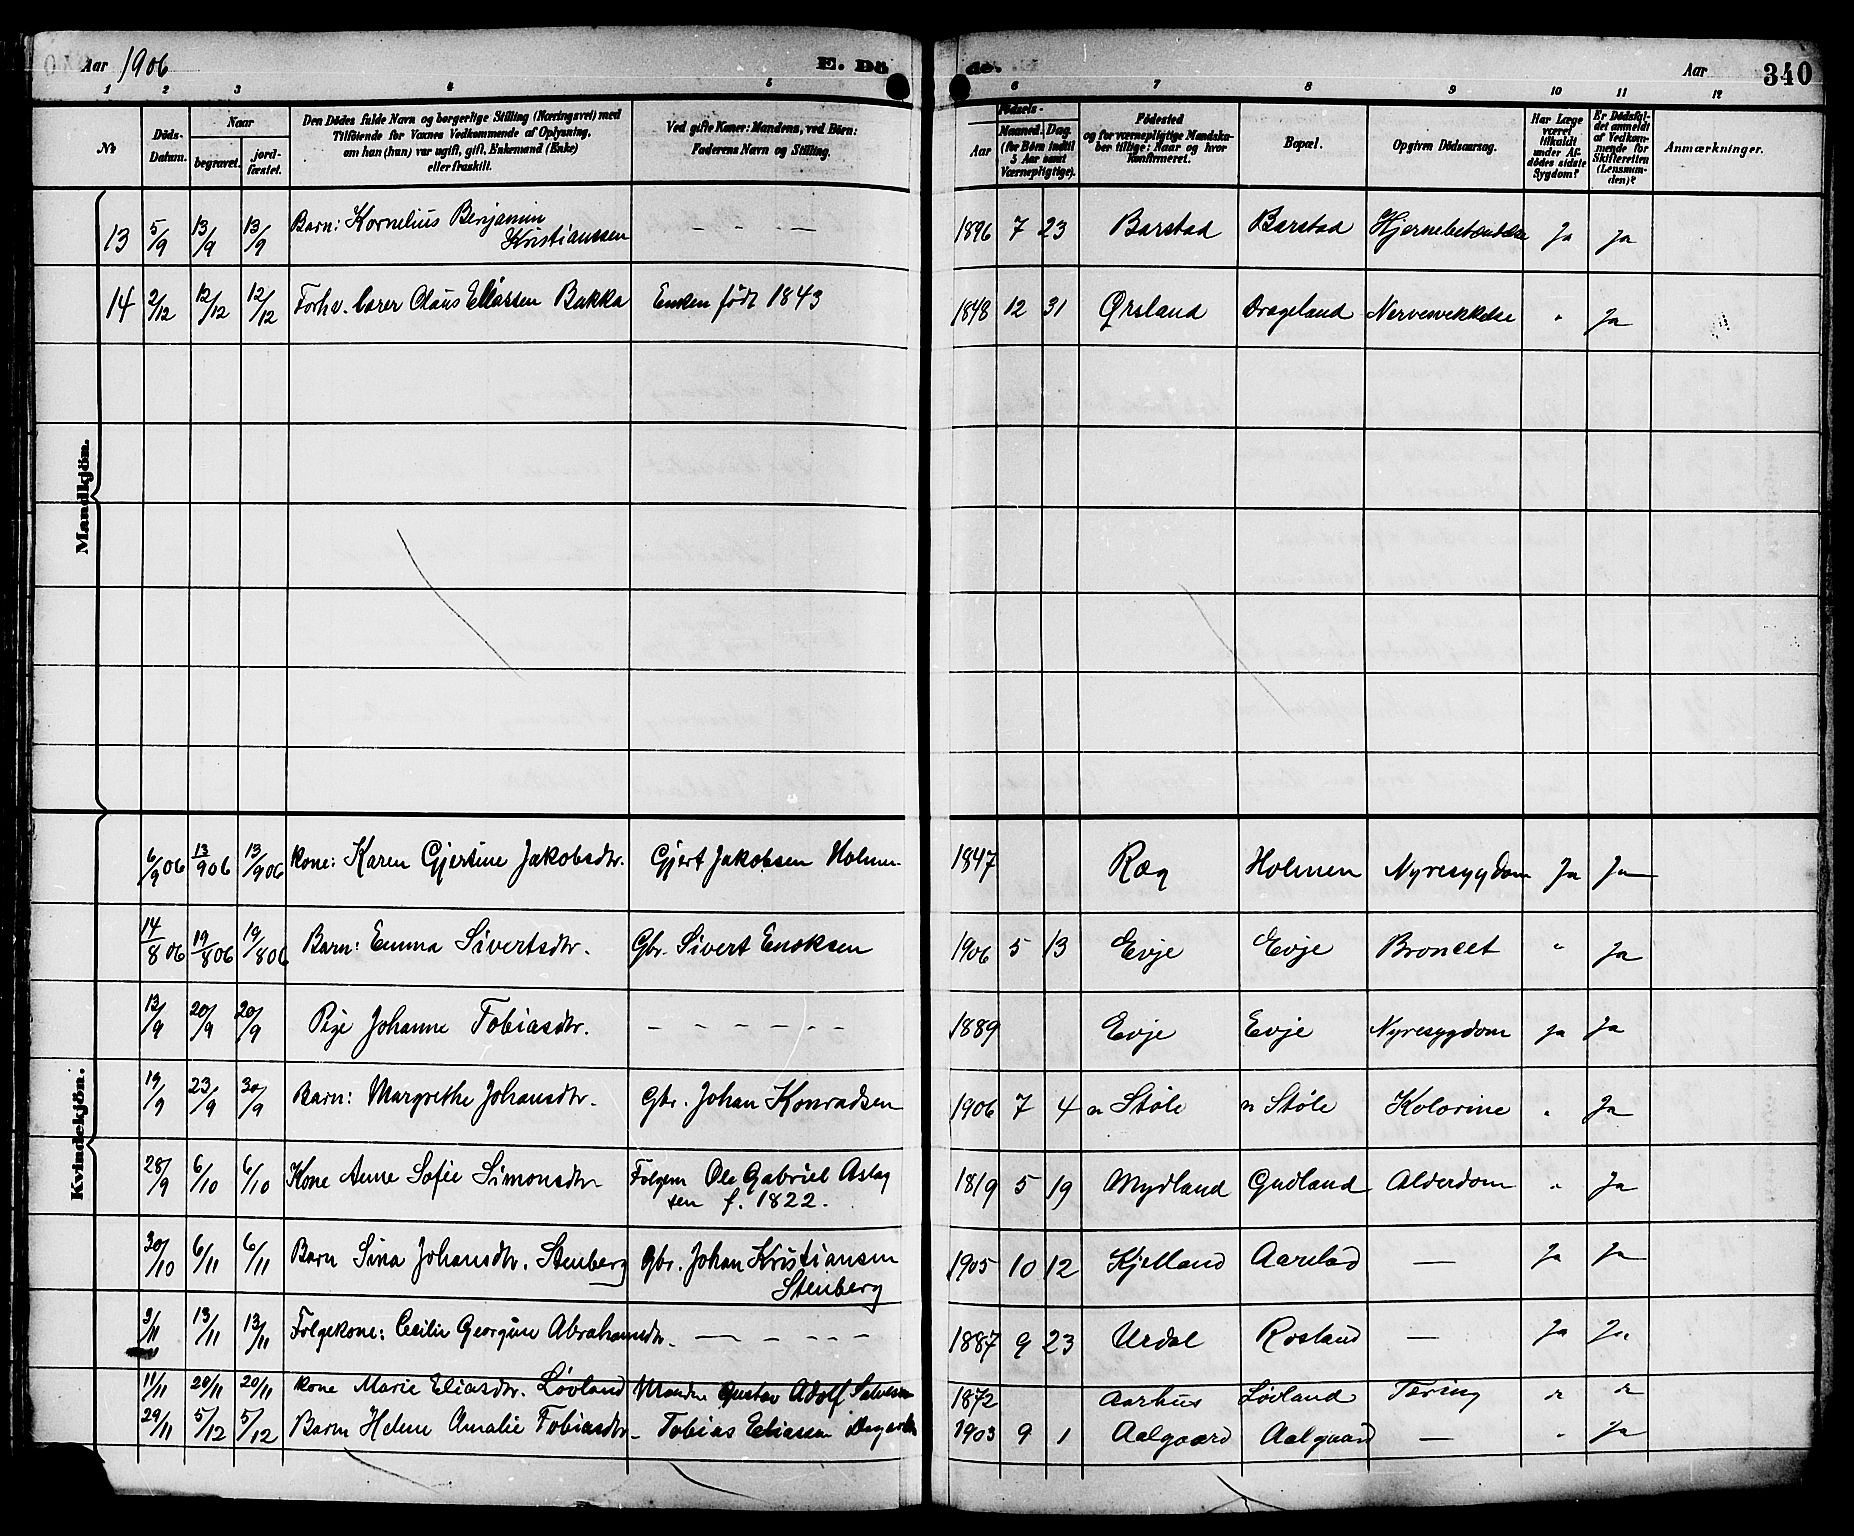 Aar 1906 E. Dö de. Aar 340
1 2 3 4 5 6 7 8 9 10 11 12
№ Döds-Datum. Naar begravet. jord-fæstet. Den Dödes fulde Navn og borgerlige Stilling (Næringsvei) med Tilföiende for Voxnes Vedkommende af Oplysning, om han (hun) var ugift, gift, Enkemand (Enke) eller fraskilt. Ved gifte Koner: Mandens, ved Börn: Faderens Navn og Stilling. Födsels- Aar Maaned. Dag. (for Børn indtil 5 Aar samt Værnepligtige). Födested og for værnepligtige Mandskaber tillige: Naar og hvor konfirmeret. Bopæl. Opgiven Dödsaarsag. Har Læge været tilkaldt under Afdödes sidste Sygdom? Er Dödsfaldet anmeldt af Vedkommende for Skifteretten (Lensmanden)? Anmærkninger.
Mandkjön.
13 5/9 13/9 13/9 Barn: Kornelius Benjamin Kristianssen – – – 1896 7 23 Barstad Barstad Hjernebetændelse Ja Ja
14 2/12 12/12 12/12 Forhv. lærer Claus Eliassen Bakka Enken født 1843 1848 12 31 Ørsland Drageland Nervesvekkelse " Ja
Kvindekjön.
6/9 06 13/9 06 13/9 06 Kone: Karen Gjertine Jakobsdtr. Gjert Jakobsen Holmen 1847 Ræg Holmen Nyresygdom Ja Ja
14/8 06 19/8 06 19/8 06 Barn: Emma Sivertsdtr. Gbr. Sivert Enoksen 1906 5 13 Evje Evje Broncet " Ja
13/9 20/9 20/9 Pige Johanne Tobiasdtr. – – – – – – 1889 Evje Evje Nyresygdom Ja Ja
19/9 23/9 30/9 Barn: Margrethe Johansdtr. Gbr. Johan Konradsen 1906 7 4 n Støle n Støle Kolorine " Ja
28/9 6/10 6/10 Kone Anne Sofie Simonsdtr Folgem Ole Gabriel Aslag
sen f. 1822. 1819 5 19 Mydland Gudland Alderdom " Ja
30/10 6/11 6/11 Barn Sina Johansdtr. Stenberg Gbr. Johan Kristiansen
Stenberg 1905 10 12 Kjelland Aarstad — Ja Ja
3/11 13/11 13/11 Folgekone: Cecilie Georgine Abrahamsdtr. – – – – – 1887 9 23 Urdal Rosland — Ja Ja
11/11 20/11 20/11 Kone Marie Eliasdtr. Løvland Manden Gustav Adolf Salvesen 1872 Aarhus Løvland Tæring " "
29/11 5/12 5/12 Barn Helene Amalie Tobiasdtr. Tobias Eliassen 1903 9 1 Aalgaard Aalgaard — " Ja